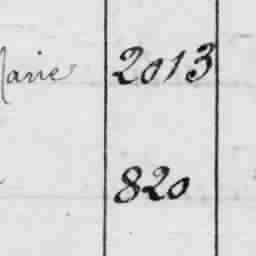 Marie 2013
820